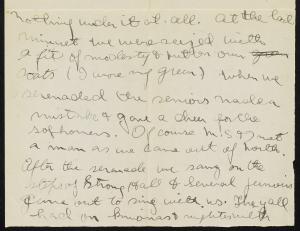 nothing under it at all. At the last
minute we were seized with
a fit of modesty & put on our
coats (I wore my green) when we
serenaded the seniors made a
mistake & gave a cheer for the
sophomores. Of course met
a man as we came out of North.
After the serenade we sang on the
steps of Strong Hall & several juniors
came out to sing with us. They all
had on kimonas & nightsw